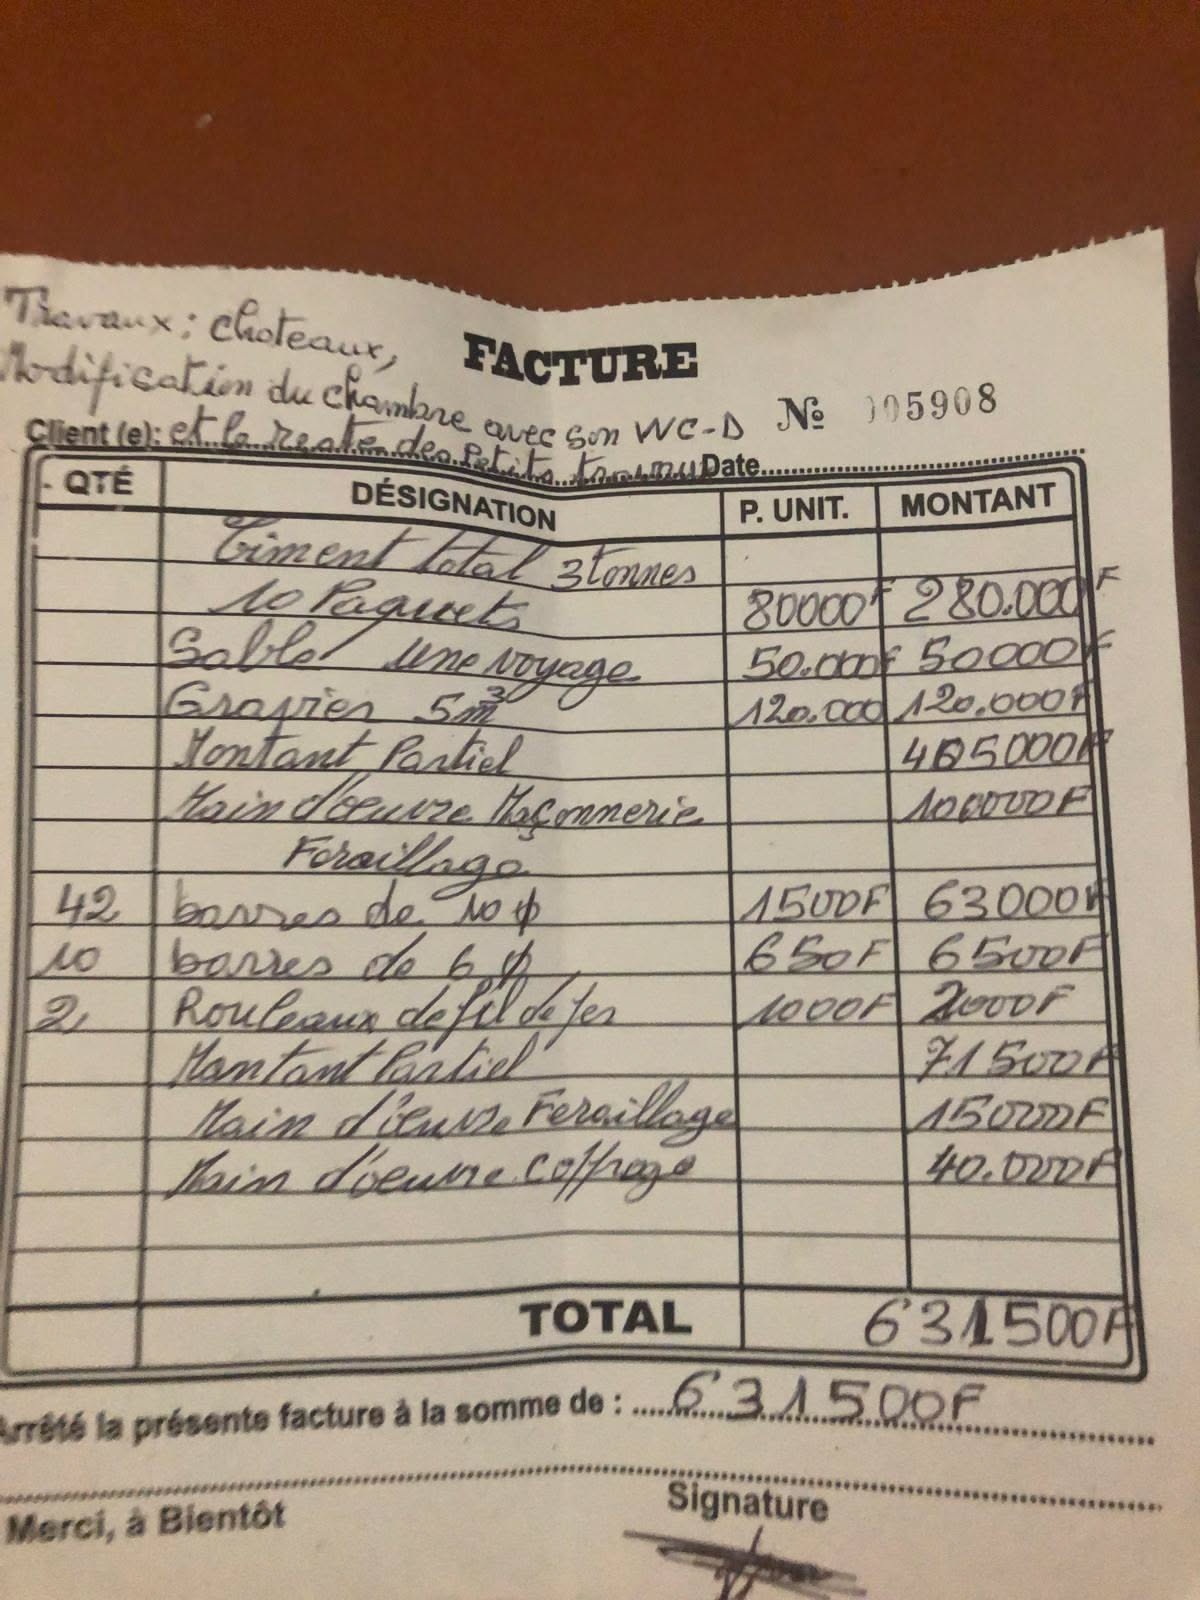 Travaux : choteaux,
Modification du chambre avec son WC-D
FACTURE
№ 005908
Client (e): et le reste des Petits travaux Date
QTÉ DÉSIGNATION P. UNIT. MONTANT
Ciment total 3 tonnes
10 Paquets 80000F 280.000F
Sable une voyage 50.000F 50000F
Gravier 5m³ 120.000 120.000F
Montant Partiel 405000F
Main d'oeuvre Maçonnerie 100000F
Feraillage
42 barres de 10 ϕ 1500F 63000F
10 barres de 6 ϕ 650F 6500F
2 Rouleaux de fil de fer 1000F 2000F
Montant Partiel 71500F
Main d'oeuvre Feraillage 15000F
Main d'oeuvre Coffrage 40.000F
TOTAL 631500F
Arrêté la présente facture à la somme de : 631500F
Merci, à Bientôt
Signature